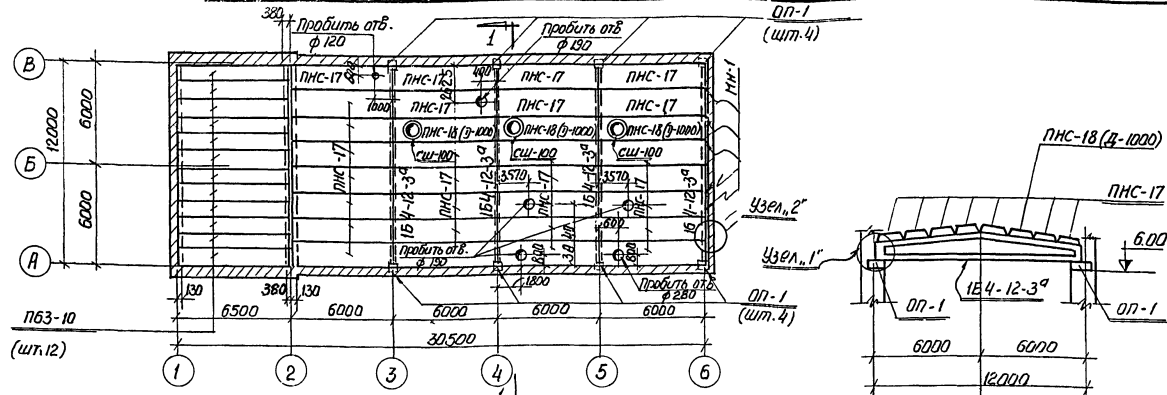 380
Пробить отв.
ф 120
1
Пробить отв
ф 190
ОП-1
(шт. 4)
В
Б
А
12000
6000
6000
ПНС-17
ПНС-17
ПНС-17
ПНС-17
1000
400
2625
ПНС-17
ПНС-17
ПНС-17
МН-1
ПНС-18 (Д-1000)
ПНС-18 (Д-1000)
ПНС-18 (Д-1000)
СШ-100
СШ-100
СШ-100
ПНС-17
1Б4-12-3а
ПНС-17
1Б4-12-3а
ПНС-17
1Б4-12-3а
ПНС-17
1Б4-12-3а
3570
3570
600
Узел „2"
Пробить отв.
ф 190
1800
Пробить отв
ф 280
ОП-1
(шт. 4)
130
380
130
6500
6000
6000
6000
6000
30500
ПБЗ-10
(шт. 12)
1
2
3
4
5
6
ПНС-18 (Д-1000)
ПНС-17
Узел „1"
6.00
1Б4-12-3а
ОП-1
ОП-1
6000
6000
12000